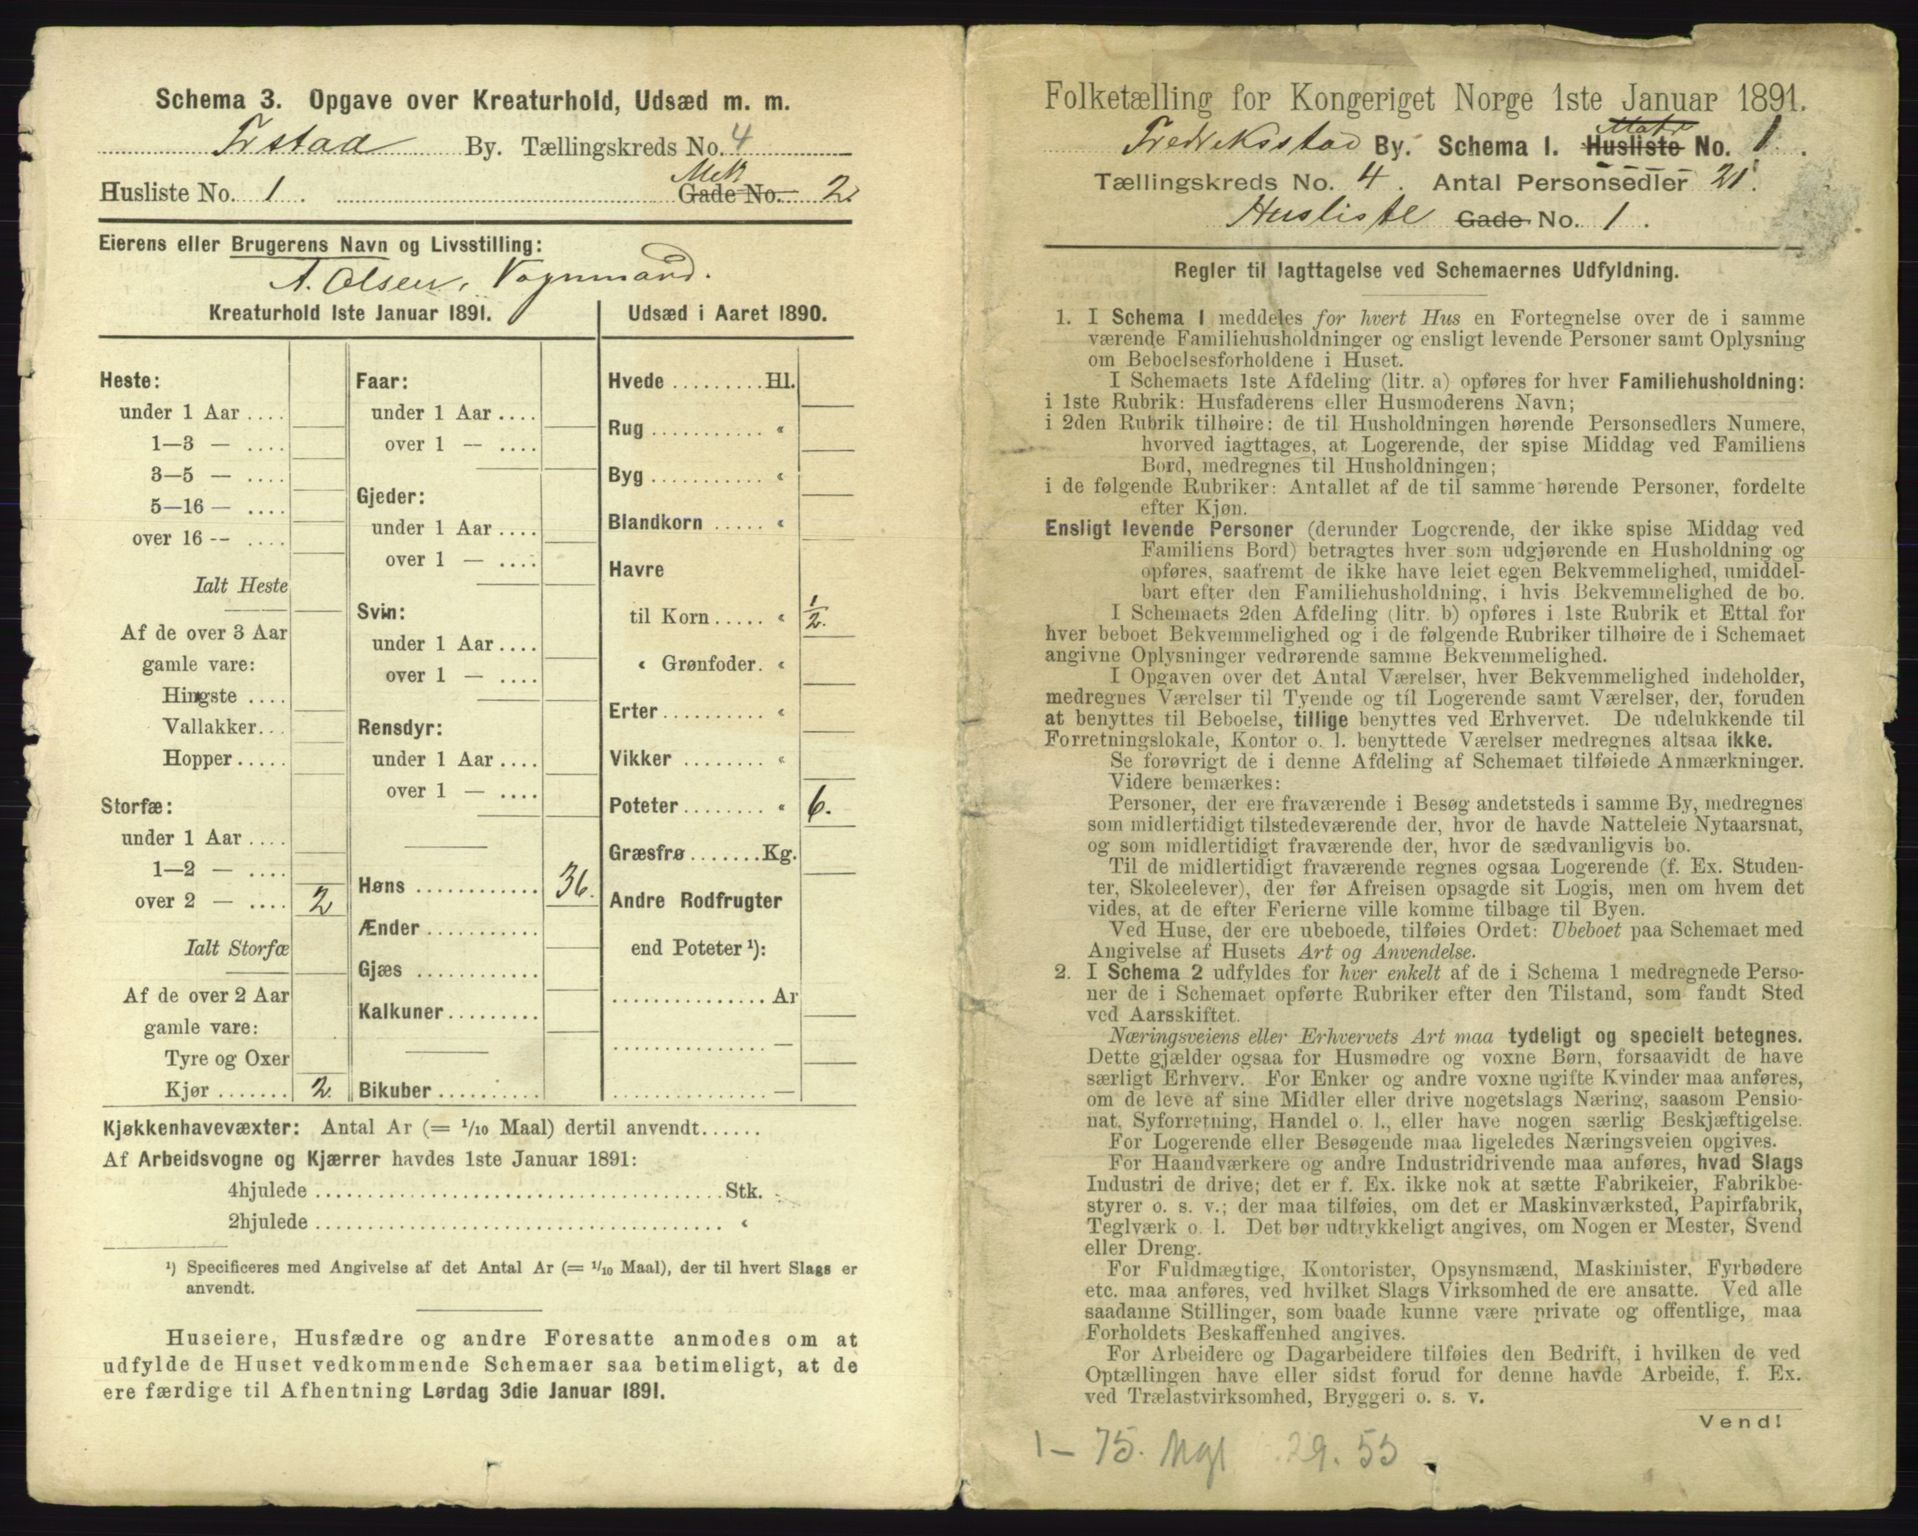 Schema 3. Opgave over Kreaturhold, Udsæd m. m.
Frstad By. Tællingskreds No. 4
Husliste No. 1. Gade No. 2.
Eierens eller Brugerens Navn og Livsstilling:
A. Olsen, Vognmand.
Kreaturhold 1ste Januar 1891.
Heste:
under 1 Aar ....
1—3 — ....
3—5 — ....
5—16 — ....
over 16 -- ....
Ialt Heste
Af de over 3 Aar
gamle vare:
Hingste ....
Vallakker...
Hopper.....
Storfæ:
under 1 Aar ....
1—2 — ....
over 2 — .... 2
Ialt Storfæ
Af de over 2 Aar
gamle vare:
Tyre og Oxer
Kjør ....... 2.
Faar:
under 1 Aar ....
over 1 — ....
Gjeder:
under 1 Aar ....
over 1 — ....
Svin:
under 1 Aar ....
over 1 — ....
Rensdyr:
under 1 Aar ....
over 1 — ....
Høns ............ 36.
Ænder ...........
Gjæs ............
Kalkuner.........
Bikuber ..........
Udsæd i Aaret 1890.
Hvede ......... Hl.
Rug ........... «
Byg ........... «
Blandkorn ..... «
Havre
til Korn ..... « 1/2.
« Grønfoder. «
Erter .......... «
Vikker ........ «
Poteter ........ « 6.
Græsfrø ....... Kg.
Andre Rodfrugter
end Poteter ¹):
............... Ar
............... —
............... —
Kjøkkenhavevæxter: Antal Ar (= 1/10 Maal) dertil anvendt......
Af Arbeidsvogne og Kjærrer havdes 1ste Januar 1891:
4hjulede ........................................ Stk.
2hjulede ........................................ «
¹) Specificeres med Angivelse af det Antal Ar (= 1/10 Maal), der til hvert Slags er
anvendt.
Huseiere, Husfædre og andre Foresatte anmodes om at
udfylde de Huset vedkommende Schemaer saa betimeligt, at de
ere færdige til Afhentning Lørdag 3die Januar 1891.
Folketælling for Kongeriget Norge 1ste Januar 1891.
Fredriksstad By. Schema 1. Husliste No. 1.
Tællingskreds No. 4. Antal Personsedler 21.
Husliste Gade No. 1.
Regler til Iagttagelse ved Schemaernes Udfyldning.
1. I Schema 1 meddeles for hvert Hus en Fortegnelse over de i samme
værende Familiehusholdninger og ensligt levende Personer samt Oplysning
om Beboelsesforholdene i Huset.
I Schemaets 1ste Afdeling (litr. a) opføres for hver Familiehusholdning:
i 1ste Rubrik: Husfaderens eller Husmoderens Navn;
i 2den Rubrik tilhøire: de til Husholdningen hørende Personsedlers Numere,
hvorved iagttages, at Logerende, der spise Middag ved Familiens
Bord, medregnes til Husholdningen;
i de følgende Rubriker: Antallet af de til samme hørende Personer, fordelte
efter Kjøn.
Ensligt levende Personer (derunder Logerende, der ikke spise Middag ved
Familiens Bord) betragtes hver som udgjørende en Husholdning og
opføres, saafremt de ikke have leiet egen Bekvemmelighed, umiddel-
bart efter den Familiehusholdning, i hvis Bekvemmelighed de bo.
I Schemaets 2den Afdeling (litr. b) opføres i 1ste Rubrik et Ettal for
hver beboet Bekvemmelighed og i de følgende Rubriker tilhøire de i Schemaet
angivne Oplysninger vedrørende samme Bekvemmelighed.
I Opgaven over det Antal Værelser, hver Bekvemmelighed indeholder,
medregnes Værelser til Tyende og til Logerende samt Værelser, der, foruden
at benyttes til Beboelse, tillige benyttes ved Erhvervet. De udelukkende til
Forretningslokale, Kontor o. l. benyttede Værelser medregnes altsaa ikke.
Se forøvrigt de i denne Afdeling af Schemaet tilføiede Anmærkninger.
Videre bemærkes:
Personer, der ere fraværende i Besøg andetsteds i samme By, medregnes
som midlertidigt tilstedeværende der, hvor de havde Natteleie Nytaarsnat,
og som midlertidigt fraværende der, hvor de sædvanligvis bo.
Til de midlertidigt fraværende regnes ogsaa Logerende (f. Ex. Studen-
ter, Skoleelever), der før Afreisen opsagde sit Logis, men om hvem det
vides, at de efter Ferierne ville komme tilbage til Byen.
Ved Huse, der ere ubeboede, tilføies Ordet: Ubeboet paa Schemaet med
Angivelse af Husets Art og Anvendelse.
2. I Schema 2 udfyldes for hver enkelt af de i Schema 1 medregnede Perso-
ner de i Schemaet opførte Rubriker efter den Tilstand, som fandt Sted
ved Aarsskiftet.
Næringsveiens eller Erhvervets Art maa tydeligt og specielt betegnes.
Dette gjælder ogsaa for Husmødre og voxne Børn, forsaavidt de have
særligt Erhverv. For Enker og andre voxne ugifte Kvinder maa anføres,
om de leve af sine Midler eller drive nogetslags Næring, saasom Pensio-
nat, Syforretning, Handel o. l., eller have nogen særlig Beskjæftigelse.
For Logerende eller Besøgende maa ligeledes Næringsveien opgives.
For Haandværkere og andre Industridrivende maa anføres, hvad Slags
Industri de drive; det er f. Ex. ikke nok at sætte Fabrikeier, Fabrikbe-
styrer o. s. v.; der maa tilføies, om det er Maskinværksted, Papirfabrik,
Teglværk o. l. Det bør udtrykkeligt angives, om Nogen er Mester, Svend
eller Dreng.
For Fuldmægtige, Kontorister, Opsynsmænd, Maskinister, Fyrbødere
etc. maa anføres, ved hvilket Slags Virksomhed de ere ansatte. Ved alle
saadanne Stillinger, som baade kunne være private og offentlige, maa
Forholdets Beskaffenhed angives.
For Arbeidere og Dagarbeidere tilføies den Bedrift, i hvilken de ved
Optællingen have eller sidst forud for denne havde Arbeide, f. Ex.
ved Trælastvirksomhed, Bryggeri o. s. v.
Vend!
1 — 75. Mgl 29. 53